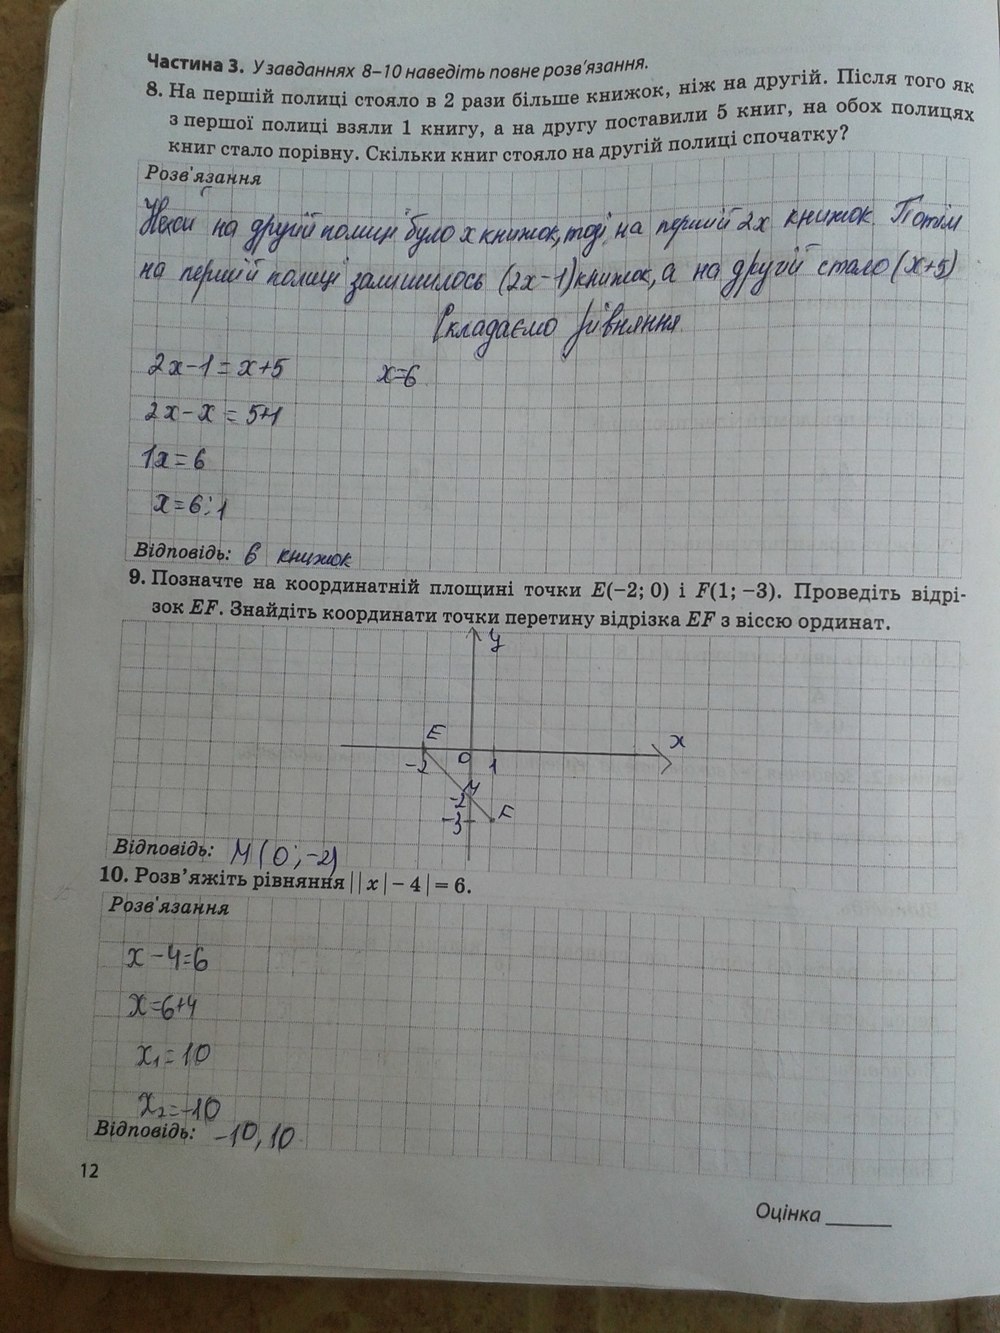 Частина 3. У завданнях 8–10 наведіть повне розв'язання.
8. На першій полиці стояло в 2 рази більше книжок, ніж на другій. Після того як
з першої полиці взяли 1 книгу, а на другу поставили 5 книг, на обох полицях
книг стало порівну. Скільки книг стояло на другій полиці спочатку?
Розв'язання
Нехай на другій полиці було x книжок, тоді на першій 2x книжок. Потім
на першій полиці залишилось (2x-1) книжок, а на другій стало (x+5)
Складаємо рівняння
2x-1=x+5 x=6
2x-x=5+1
1x=6
x=6:1
Відповідь: 6 книжок
9. Позначте на координатній площині точки E(−2; 0) і F(1; −3). Проведіть відрі-
зок EF. Знайдіть координати точки перетину відрізка EF з віссю ординат.
y
E x
-2 0 1
M
-2
-3 F
Відповідь: M(0;-2)
10. Розв'яжіть рівняння ||x|−4|=6.
Розв'язання
x-4=6
x=6+4
x₁=10
x₂=-10
Відповідь: -10, 10
12
Оцінка ______